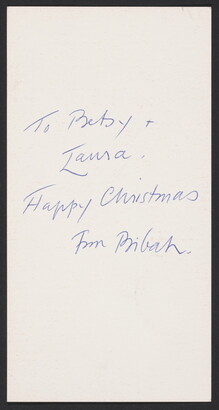 To Betsy +
Laura.
Happy Christmas
from